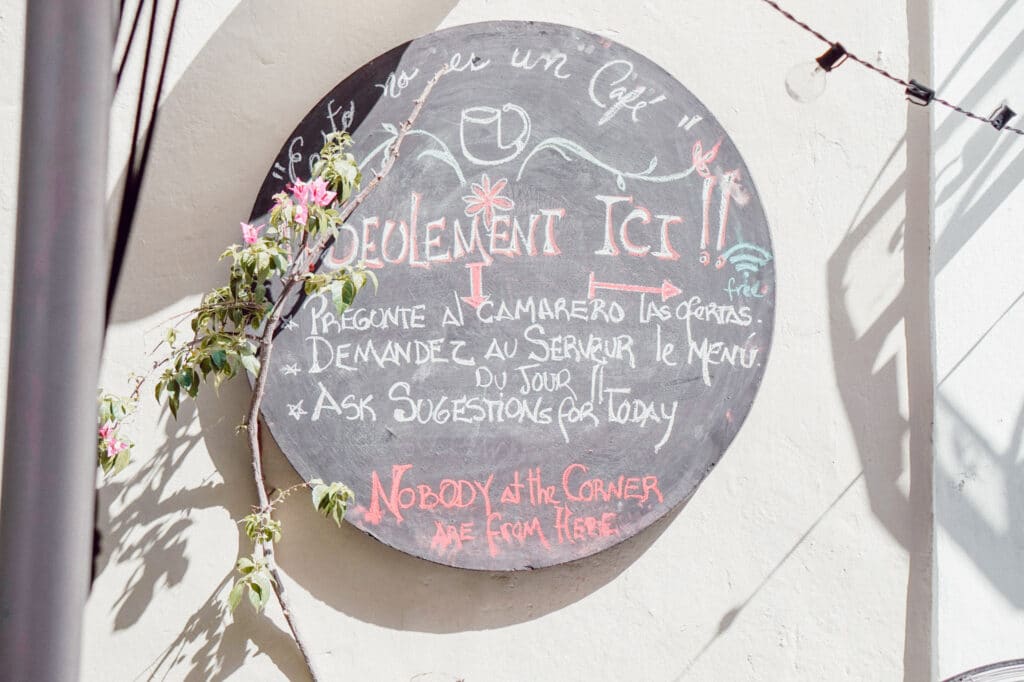 "Esto no es un Café"
SEULEMENT ICI !!
free
* PREGUNTE Al CAMARERO lAS OfERTAS.
* DEMANDEZ AU SERVEUR le MENÚ.
DU JOUR !!
* ASK SUGESTIONS for TODAY
NOBODY at the CORNER
ARE fROM HERE